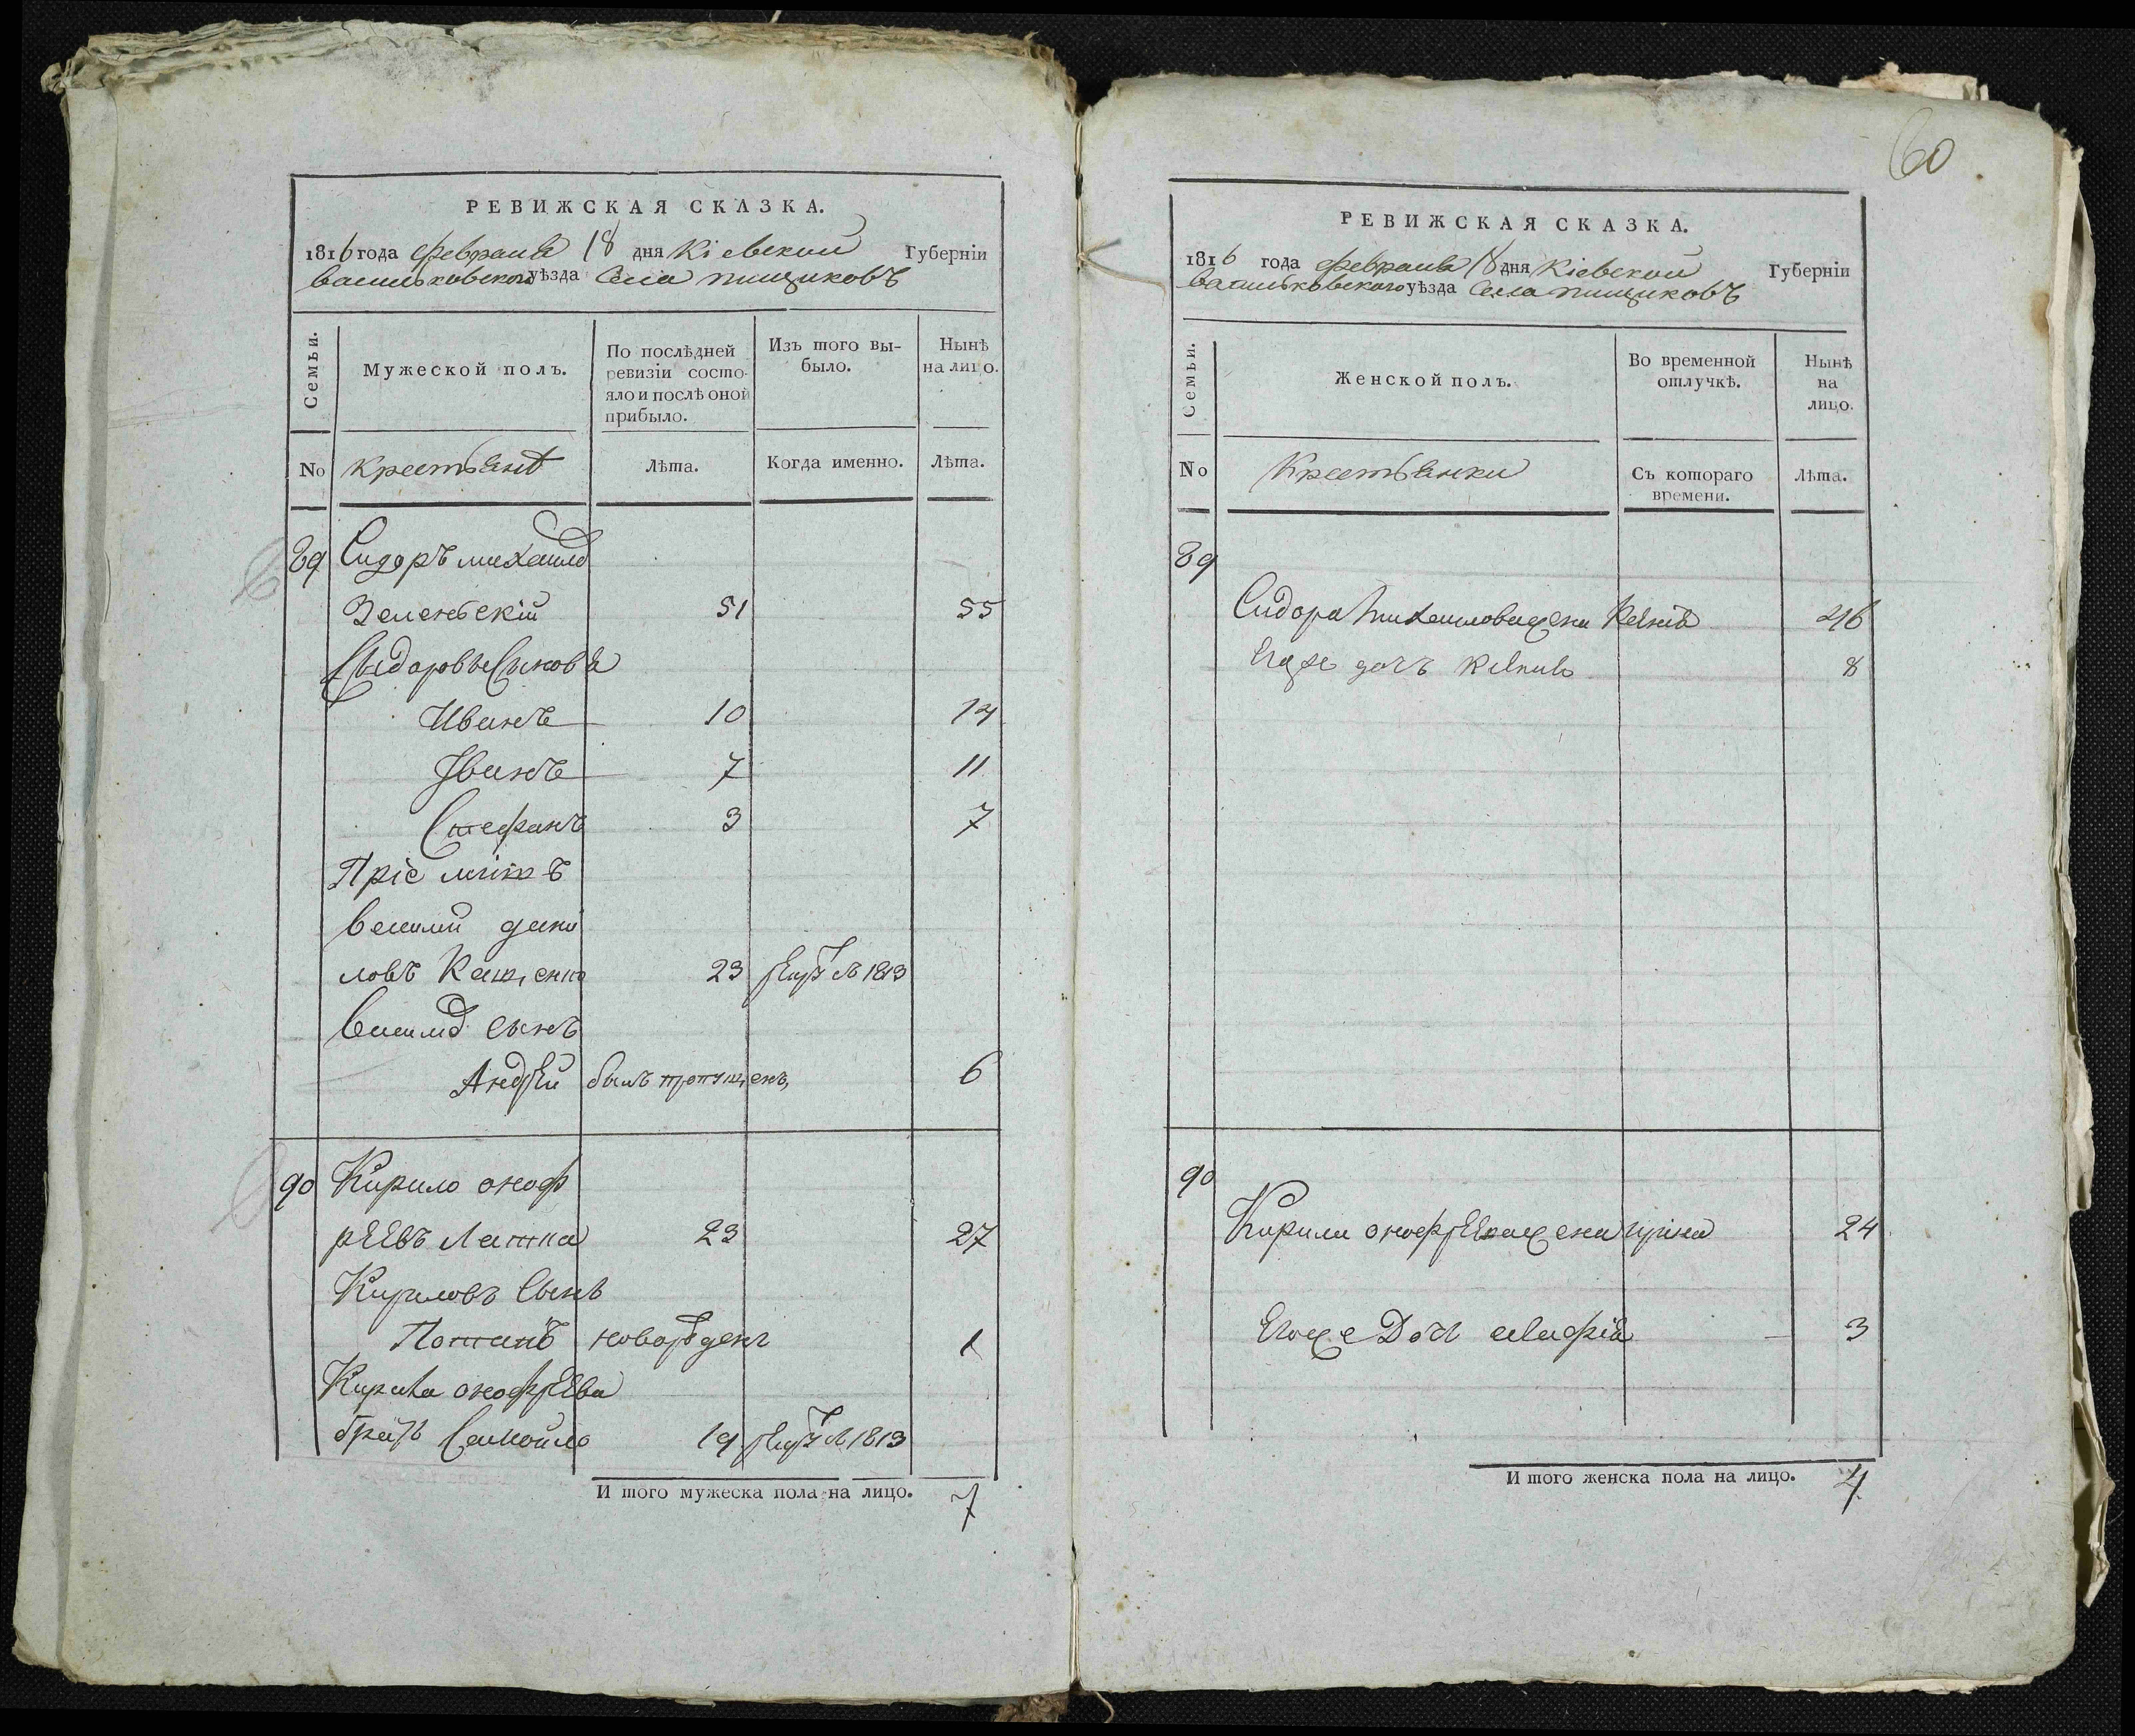 РЕВИЖСКАЯ СКАЗКА.
1816 года февраля 18 дня Кіевской Губерніи
васильковского уѣзда Села пищиковъ
Семьи.
Мужеской полъ.
По послѣдней ревизіи состояло и послѣ оной прибыло.
Изъ того выбыло.
Нынѣ на лицо.
No
крестьянѣ
Лѣта.
Когда именно.
Лѣта.
89 Сидоръ михаила
Зеленьскій 51 55
Сыдоровы Сыновя
Иванъ 10 14
Иванъ 7 11
Стефанъ 3 7
Пріемитъ
василий дани
ловъ Кащенко 23 1813
василя сынъ
Андрей былъ пропущенъ, 6
90 Кирило оноф
реевъ Латка 23 27
Кириловъ Сынъ
Потапъ новорожденъ 1
Кирила онофреева
братъ Самойло 19 1813
И того мужеска пола на лицо. 7
60
РЕВИЖСКАЯ СКАЗКА.
1816 года февраля 18 дня Кіевской Губерніи
васильковского уѣзда Села пищиковъ
Семьи.
Женской полъ.
Во временной отлучкѣ.
Нынѣ на лицо.
No
Крестьянки
Съ котораго времени.
Лѣта.
89
Сидора михайлова жена 46
Егоже дочъ 8
90
Кирила онофреева жена ирина 24
Егоже Доч 3
И того женска пола на лицо. 4